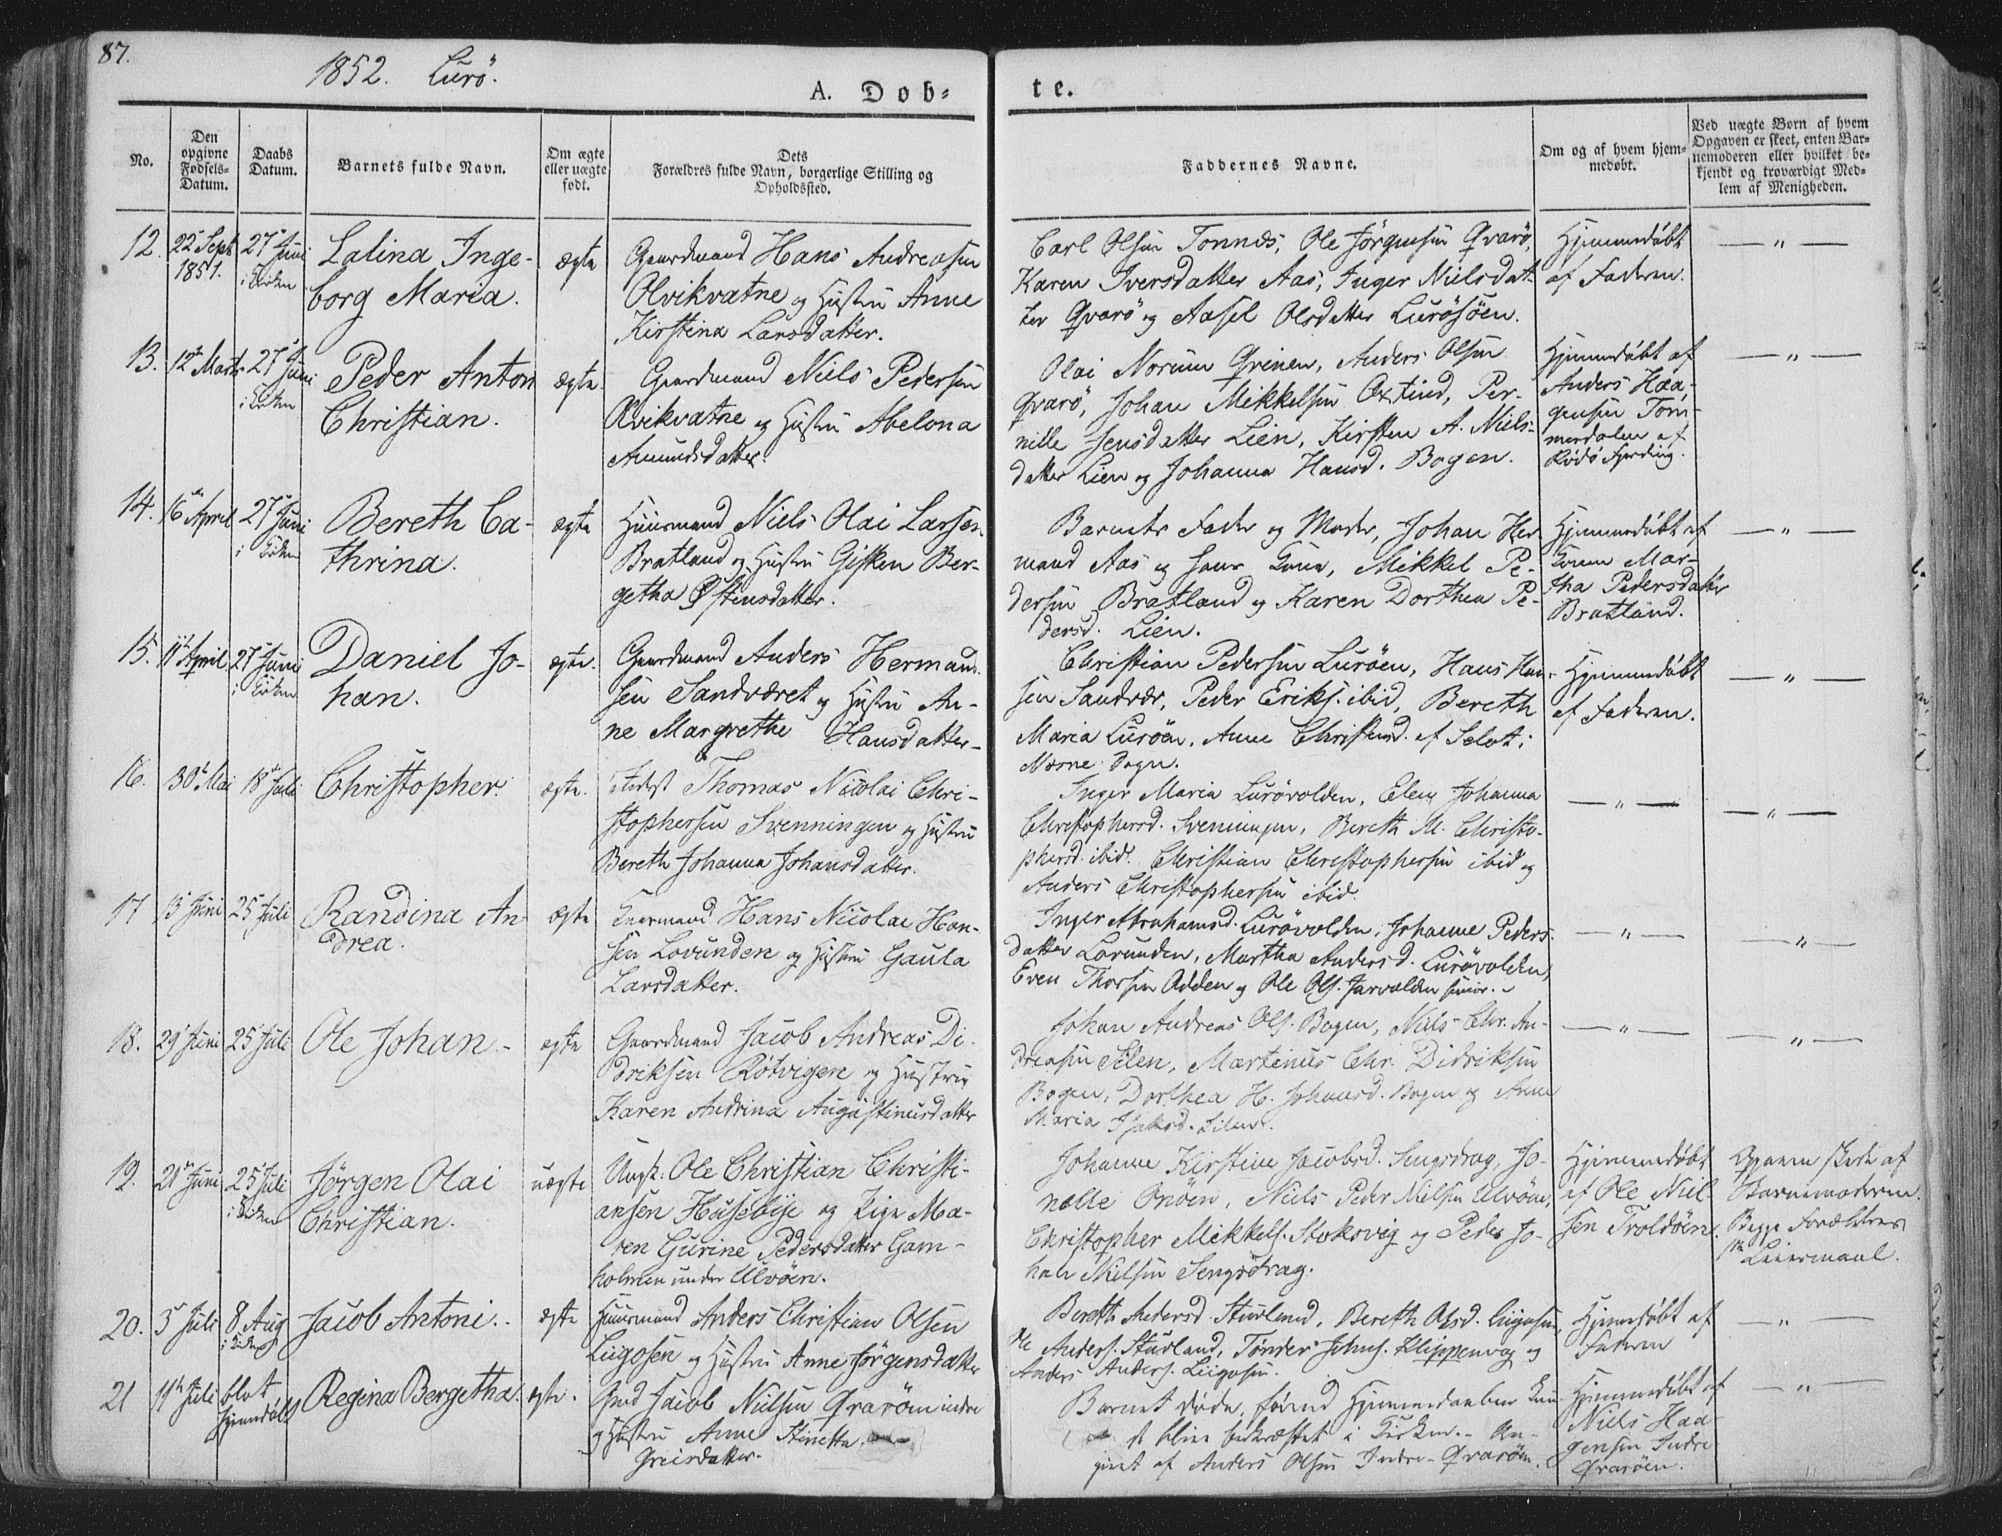 87.
1852. Lurö.
A. Döb-
te.
No.
Den opgivne Fødsels-Datum.
Daabs Datum.
Barnets fulde Navn.
Om ægte eller uægte født.
Dets Forældres fulde Navn, borgerlige Stilling og Opholdssted.
Faddernes Navne.
Om og af hvem hjem-medøbt.
Ved uægte Børn af hvem Opgaven er skeet, enten Bar-nemoderen eller hvilket be-kjendt og troværdigt Med-lem af Menigheden.
12. 22 Sept 1851. 27 Juni i Kirken
Lalina Inge-
borg Maria.
ægte
Gaardmand Hans Andreasen
Olvikvatne og Hustru Anne
Kirstina Larsdatter.
Carl Olsen Tonnes, Ole Jörgensen Qvarö,
Karen Iversdatter Aas, Inger Nielsdat-
ter Qvarö og Aasel Olsdatter Lurösöen.
Hjemmedøbt
af Faderen.
— " —
13. 12 Marts 27 Juni i Kirken
Peder Anton
Christian.
ægte.
Gaardmand Niels Pedersen
Olvikvatne og Hustru Abelona
Amundsdatter.
Olai Norum Qvinen, Anders Olsen
Qvarö, Johan Mikkelsen Oxtind, Per-
nille Jensdatter Lien, Kirsten A. Niels-
datter Lien og Johanna Hansd. Bogen.
Hjemmedøbt af
Anders Haa-
gensen Tom-
merdalen af
Rödö Fjerding.
— " —
14. 16 April 27 Juni i Kirken
Bereth Ca-
thrina.
ægte
Huusmand Niels Olai Larsen
Bratland og Hustru Gisken Ber-
getha Östensdatter.
Barnets Fader og Moder, Johan Her-
mand Aas og hans Kone, Mikkel Pe-
dersen Bratland og Karen Dorthea Pe-
dersd. Lien.
Hjemmedøbt af
Konen Mar-
tha Pedersdatter
Bratland.
— " —
15. 11 April 27 Juni i Kirken
Daniel Jo-
han.
ægte.
Gaardmand Anders Herman-
sen Sandværet og Hustru An-
ne Margrethe Hansdatter.
Christian Pedersen Luröen, Hans Han-
sen Sandvær, Peder Eriks. ibid, Bereth
Maria Luröen, Anne Christensd. af Selot i
Næsne Sogn.
Hjemmedøbt
af Faderen.
— " —
16. 30 Mai 18 Juli
Christopher.
ægte.
Thomas Nicolai Chri-
stophersen Svenningen og Hustru
Bereth Johanna Johansdatter.
Inger Maria Lurövolden, Elen Johanna
Christophersd. Svenningen, Bereth M. Christo-
phersd. ibid. Christian Christophersen ibid og
Anders Christophersen ibid.
— " —
— " —
17 13 Juni 25 Juli
Randina An-
drea.
ægte
Hans Nicolai Han-
sen Lovunden og Hustru Gaula
Larsdatter.
Inger Abrahamsd. Lurövolden, Johanne Peders-
datter Lovunden, Martha Andersd. Lurövolden,
Even Thorsen Odden og Ole Ols. Jarvolden junior.
— " —
— " —
18. 29 Juni 25 Juli
Ole Johan.
ægte
Gaardmand Jacob Andreas Di-
driksen Rötvigen og Hustru
Karen Andrina Augustinusdatter
Johan Andreas Ols. Bogen, Niels Chr. An-
dreasen Silen, Martinus Chr. Didriksen
Bogen, Dorthea H. Johansd. Bogen og Anne
Maria Isaksd. Silen.
— " —
— " —
19. 21 Juni 25 Juli i Kirken
Jörgen Olai
Christian.
uægte
Ungk. Ole Christian Christi-
ansen Husebye og Pige Ma-
ren Gurine Pedersdatter Gam-
holmen under Ulvöen.
Johanne Kirstine Jacobsd. Sengsdrag, Jo-
nelle Onöen, Niels Peder Nielsen Ulvöen,
Christopher Mikkels. Stoksvig og Peder Jo-
han Nilsen Sengsdrag.
Hjemmedøbt
af Ole Niel-
sen Troldöen.
Opgaven skede af
Barnemoderen.
Begge Forældres
1ste Leiermaal.
20. 5 Juli 8 Aug i Kirken
Jacob Antoni.
ægte
Huusmand Anders Christian Olsen
Liigosen og Hustru Anne Jörgensdatter
Bereth Andersd. Stuvland, Bereth Olsd. Liigosen,
Ole Anders. Stuvland, Tönder Johns. Klippenvog og
Anders Anders. Liigosen.
Hjemmedøbt af
Faderen
— " —
21 14 Juli blot hjemdøbt
Regina Bergetha.
ægte.
Gmd Jacob Nielsen Qvaröen indre
og Hustru Anne Stinetta
Greisdatter.
Barnet døde, førend Hjemmedaaben kun-
de blive bekræftet i Kirken. An-
givet af Anders Olsen Indre-Qvaröen.
Hjemmedøbt af
Niels Haa-
gensen Indre
Qvaröen.
— " —